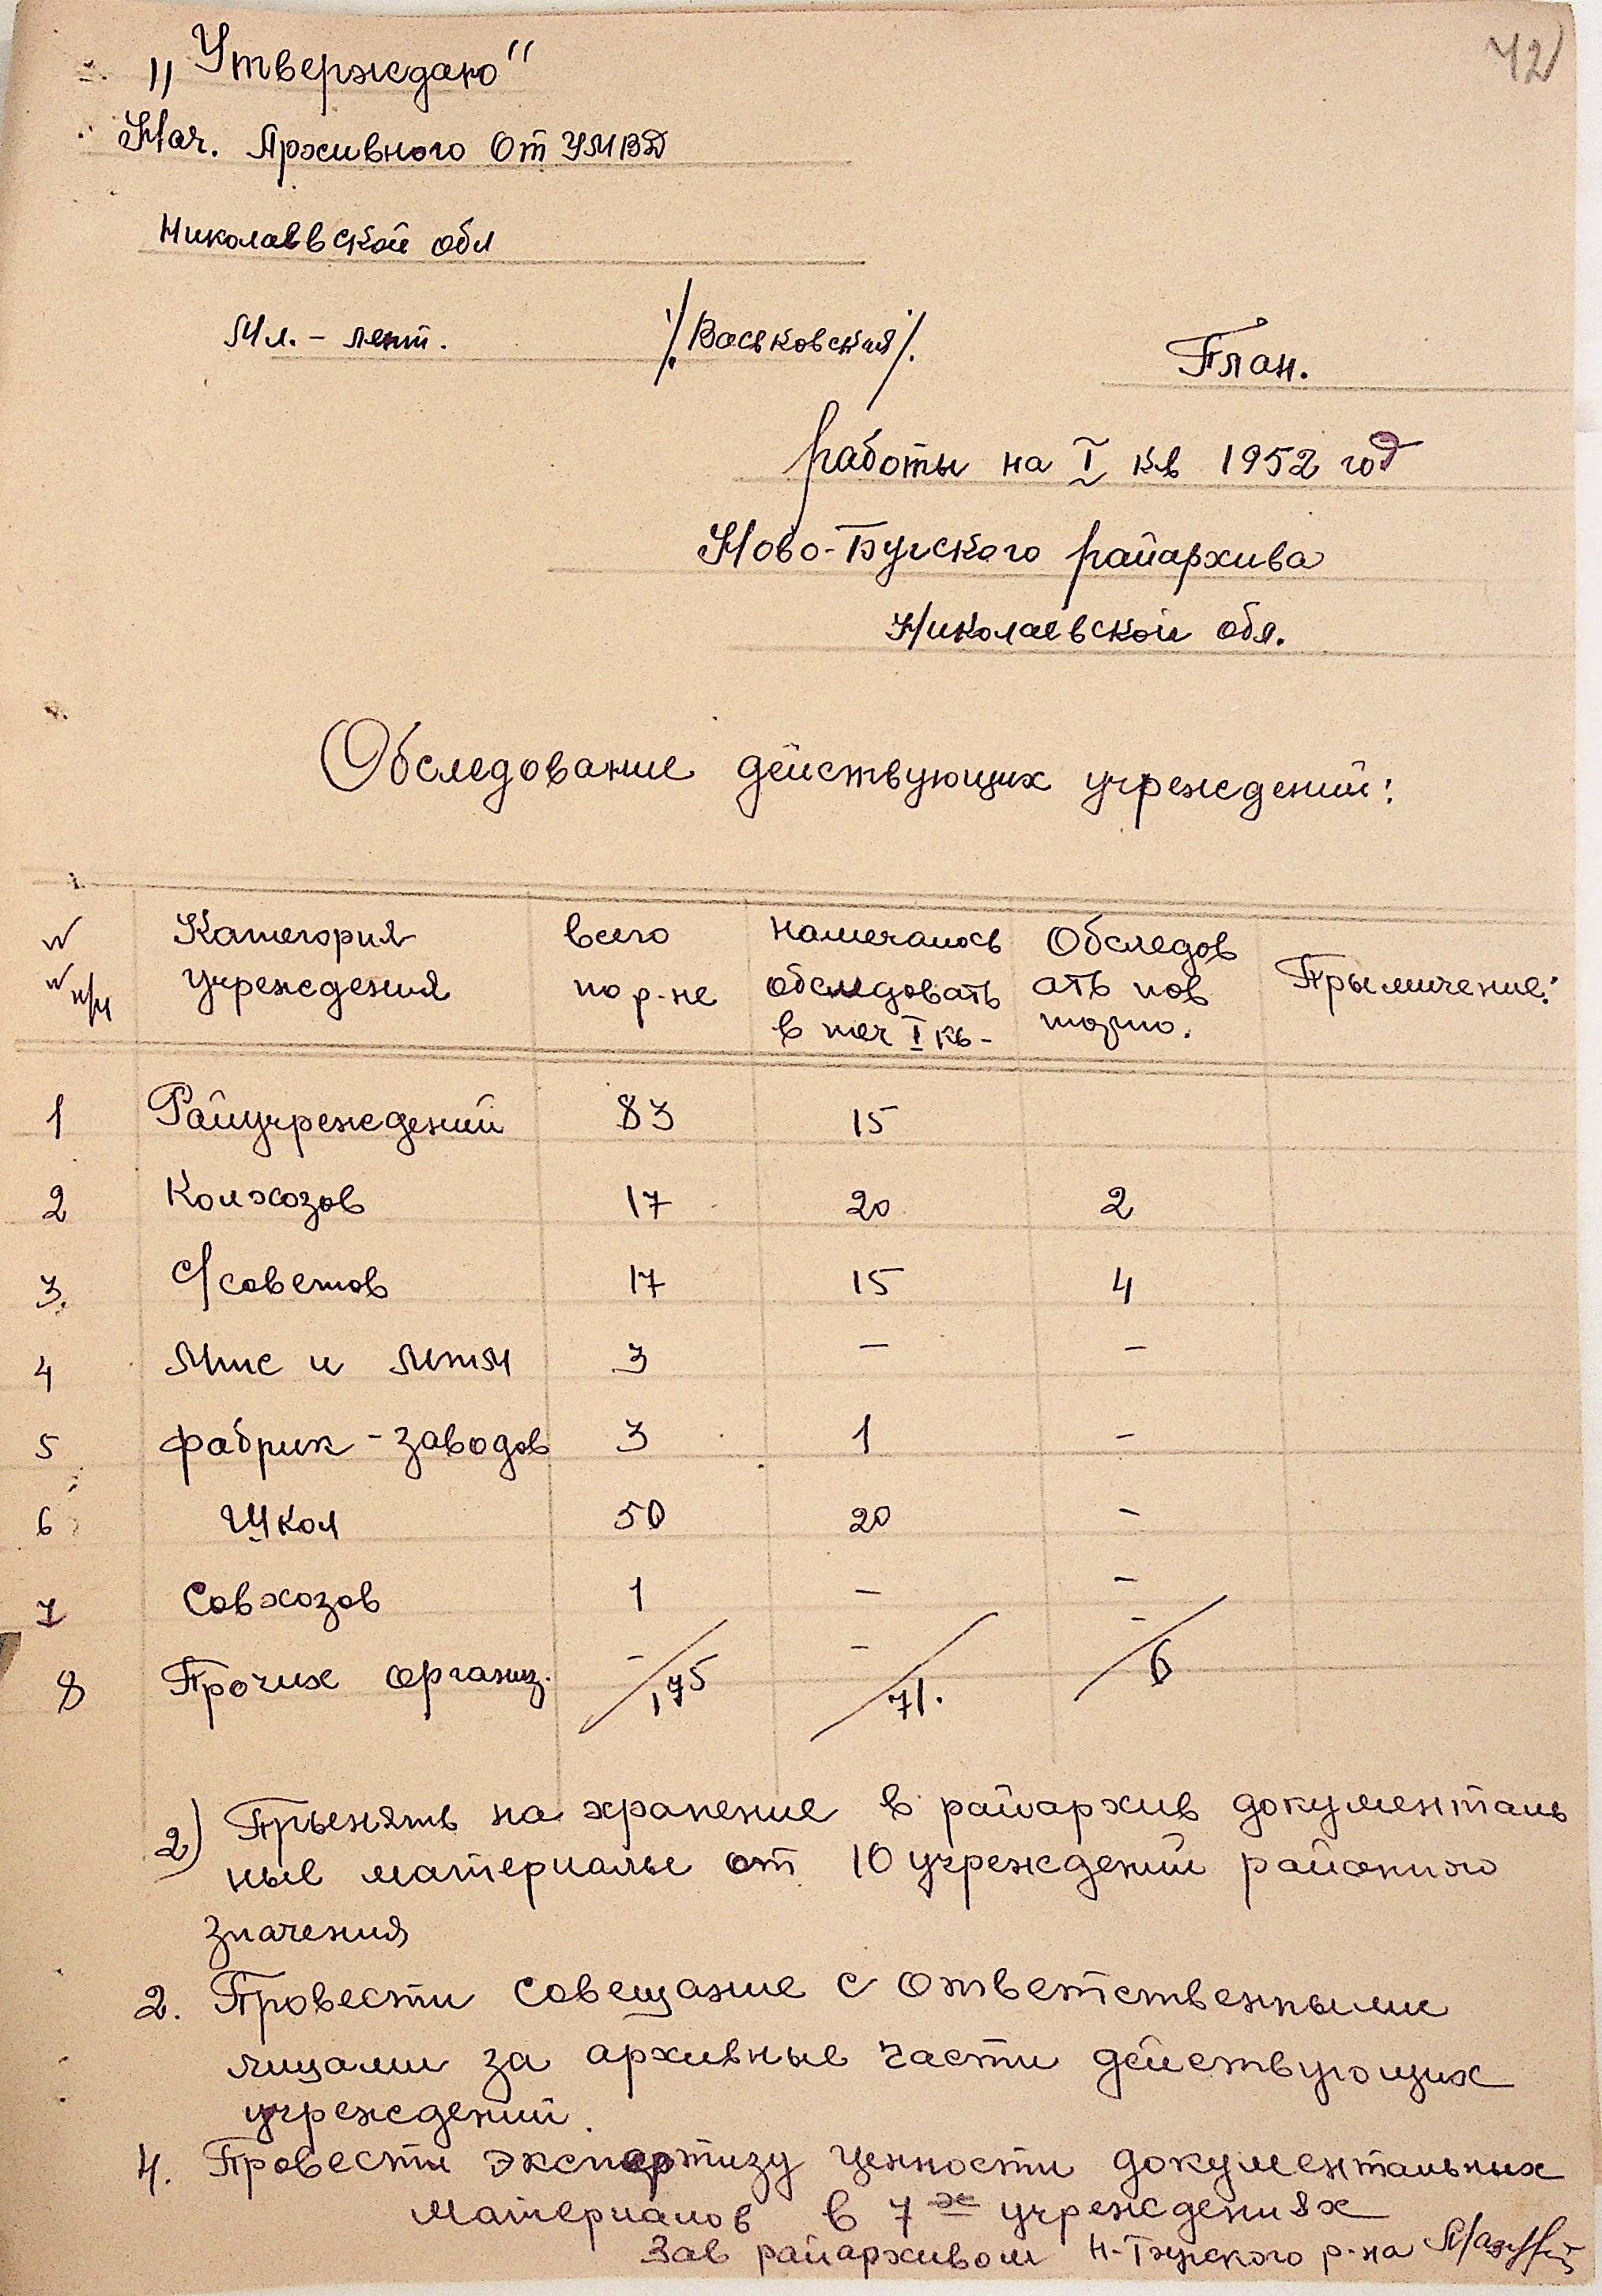 42
„Утверждаю"
Нач. Архивного От УМВД
Николаевской обл
Мл. - лент. /Воськовский/.
План.
работы на I кв 1952 год
Ново-Бугского райархива
Николаевской обл.
Обследование действующих учреждений:
№ Категория всего намечалось Обследов
№ учреждения по р-не обследовать ать пов Прымичение:
п/п в теч I кв- торно.
1 Райучреждений 83 15
2 Колхозов 17 20 2
3. с/советов 17 15 4
4 Мтс и Мтм 3 — —
5 фабрик - заводов 3 1 -
6 Школ 50 20 -
7 Совхозов 1 — -
8 Прочих организ. - - -
175 71. 6
2) Прынять на хранение в райархив документаль
ные материалы от 10 учреждений районного
значения
2. Провести совещание с ответственными
лицами за архивные части действующих
учреждений.
4. Провести экспертизу ценности документальных
материалов в 7х учреждениях
Зав райархивом Н-Бугского р-на